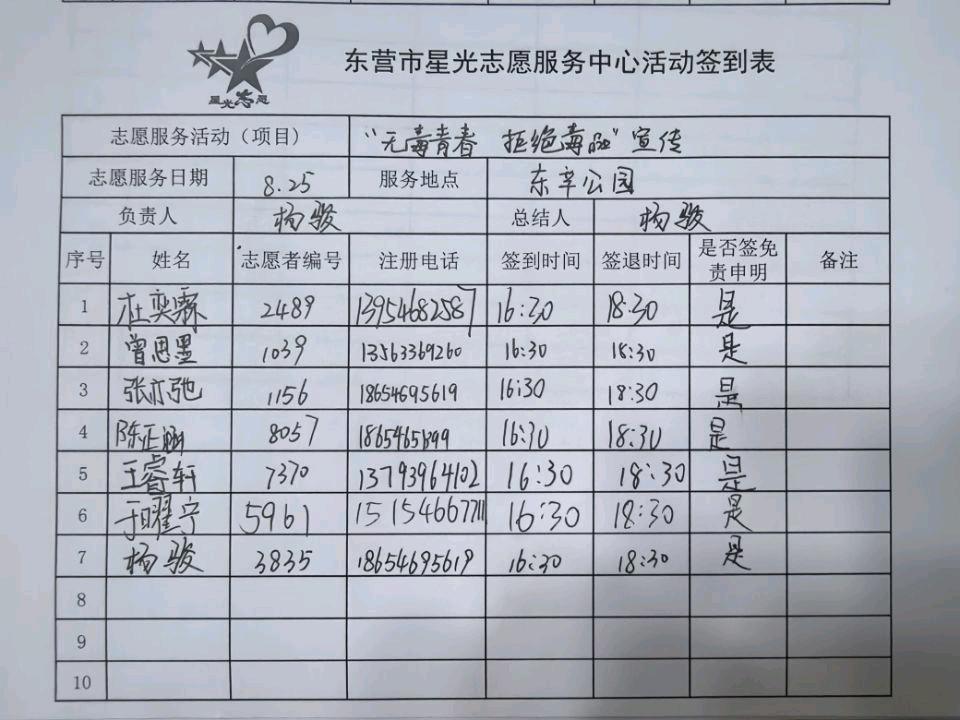 星光志愿
东营市星光志愿服务中心活动签到表
志愿服务活动（项目） “无毒青春 拒绝毒品”宣传
志愿服务日期 8.25 服务地点 东辛公园
负责人 杨骏 总结人 杨骏
序号 姓名 志愿者编号 注册电话 签到时间 签退时间 是否签免责申明 备注
1 杜奕霖 2489 13954682587 16:30 18:30 是
2 曾思墨 1039 13563369260 16:30 18:30 是
3 张亦弛 1156 18654695619 16:30 18:30 是
4 陈正涵 8057 16:30 18:30 是
5 王睿轩 7370 13793964102 16:30 18:30 是
6 于曜宁 5961 16:30 18:30 是
7 杨骏 3835 18654695619 16:30 18:30 是
8
9
10